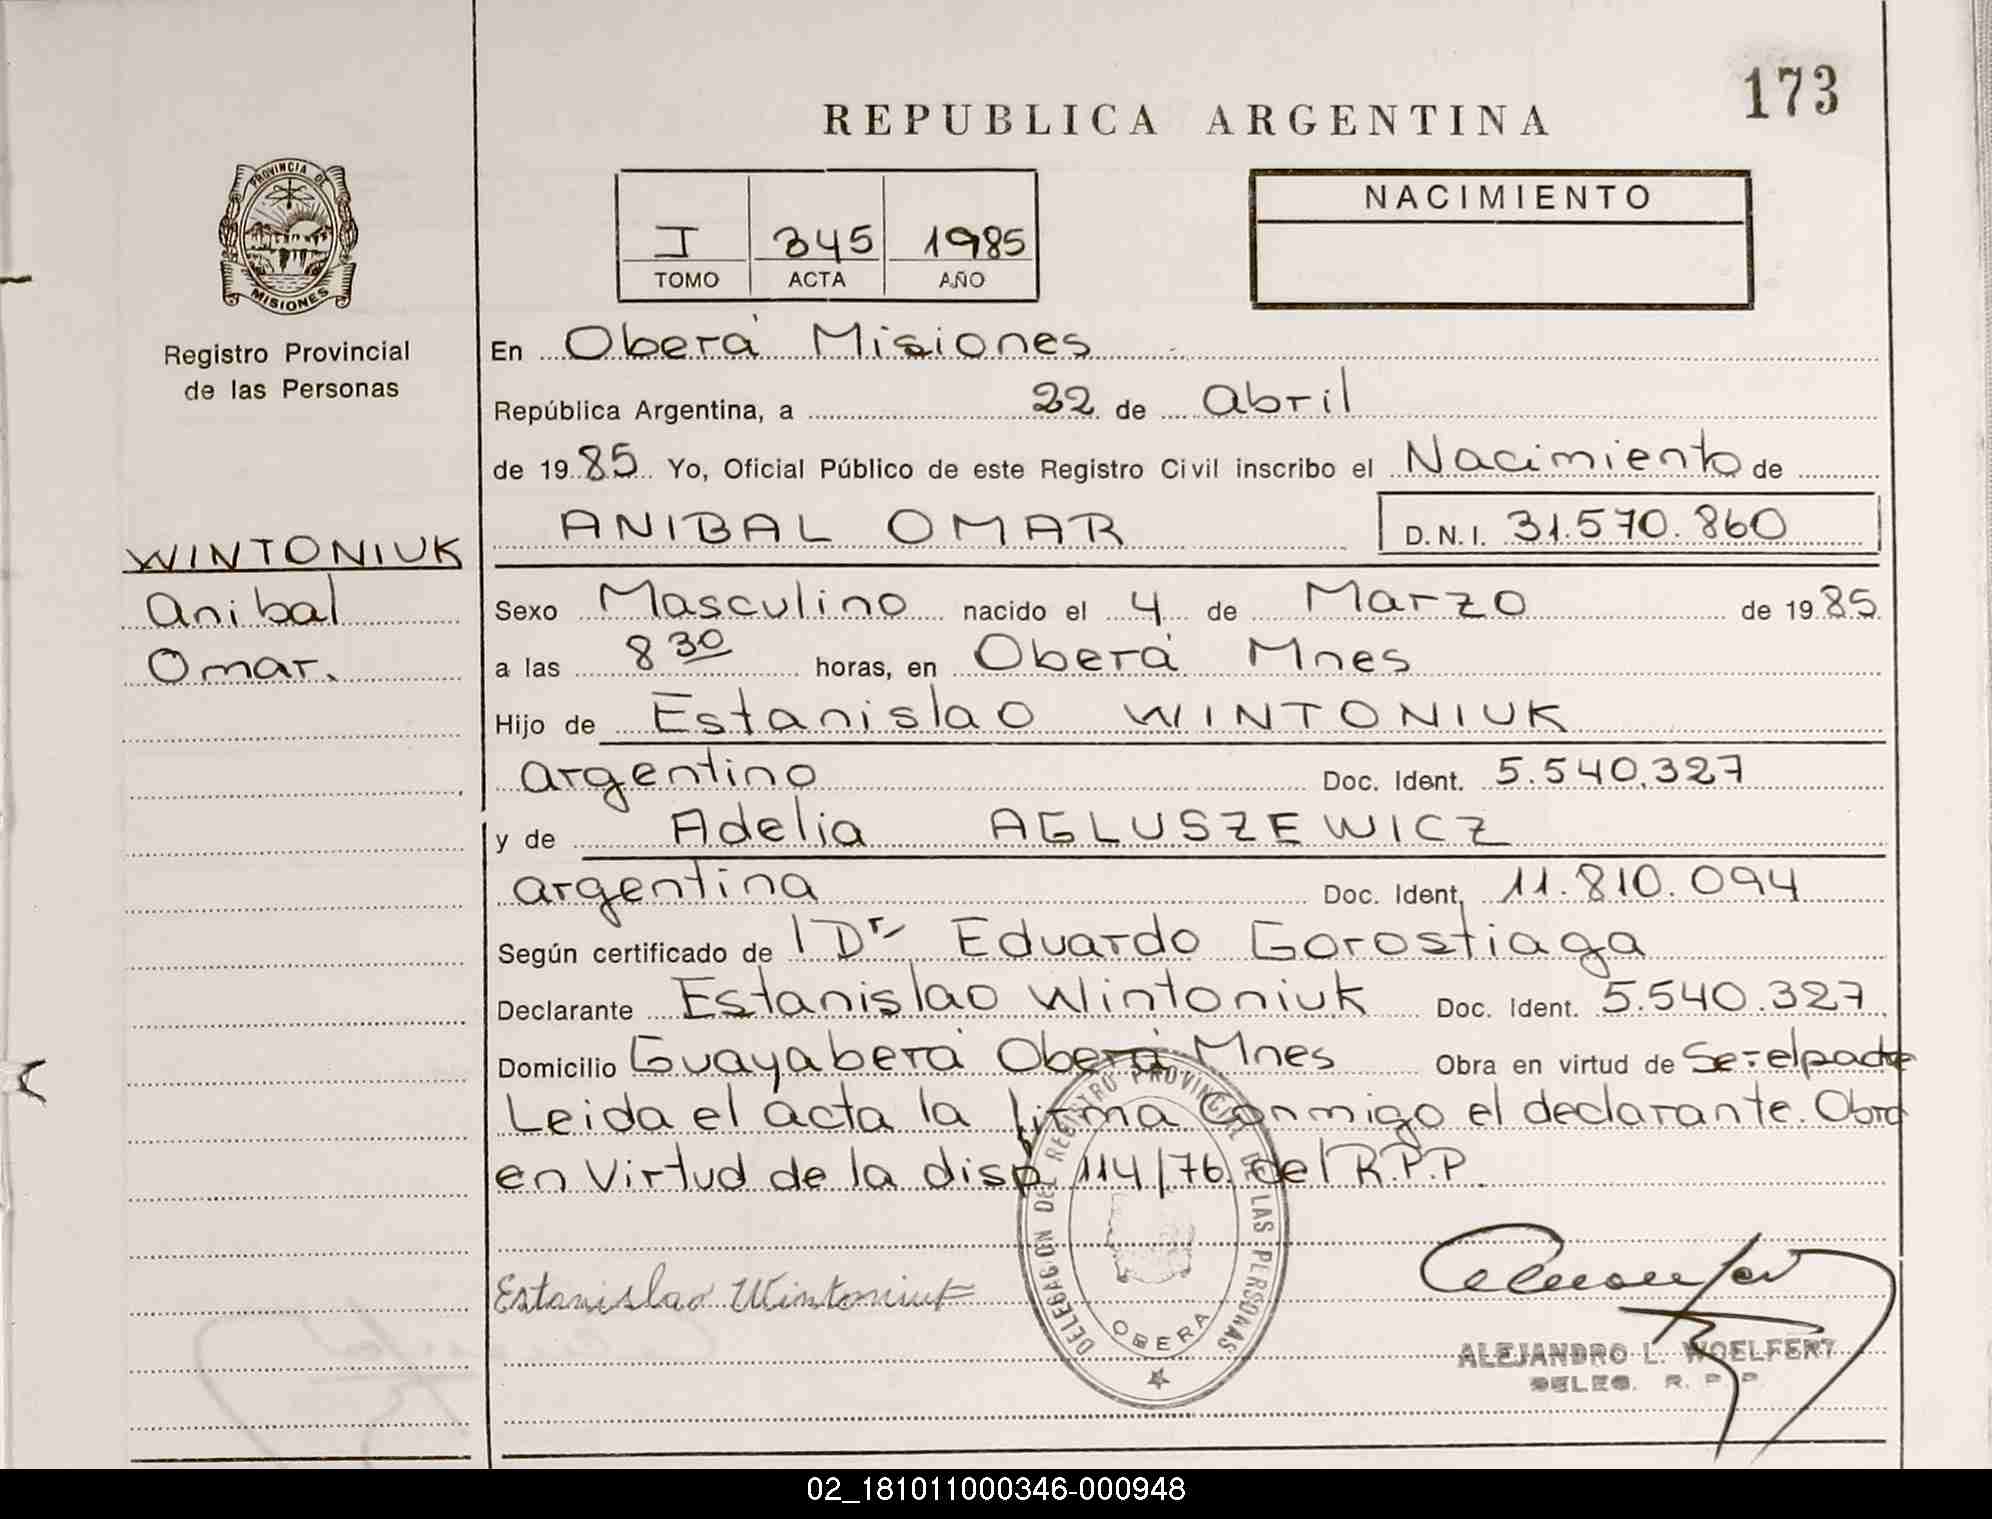 173
REPUBLICA ARGENTINA
PROVINCIA DE
MISIONES
Registro Provincial
de las Personas
I 345 1985
TOMO ACTA AÑO
NACIMIENTO
En Oberá Misiones
República Argentina, a 22 de abril
de 1985 Yo, Oficial Público de este Registro Civil inscribo el Nacimiento de
ANIBAL OMAR D.N.I. 31.570.860
WINTONIUK
Anibal
Omar.
Sexo Masculino nacido el 4 de Marzo de 1985
a las 8 30 horas, en Oberá Mnes
Hijo de Estanislao WINTONIUK
argentino Doc. Ident. 5.540.327
y de Adelia AGLUSZEWICZ
argentina Doc. Ident. 11.810.094
Según certificado de Dr Eduardo Gorostiaga
Declarante Estanislao Wintoniuk Doc. Ident. 5.540.327
Domicilio Guayaberá Oberá Mnes Obra en virtud de Ser el padre
Leida el acta la firma conmigo el declarante. Obra
en Virtud de la disp 114/76 del R.P.P.
DELEGACION DEL REGISTRO PROVINCIAL DE LAS PERSONAS
OBERA
Estanislao Wintoniuk
ALEJANDRO L. WOELFERT
DELEG. R. P. P.
02_181011000346-000948